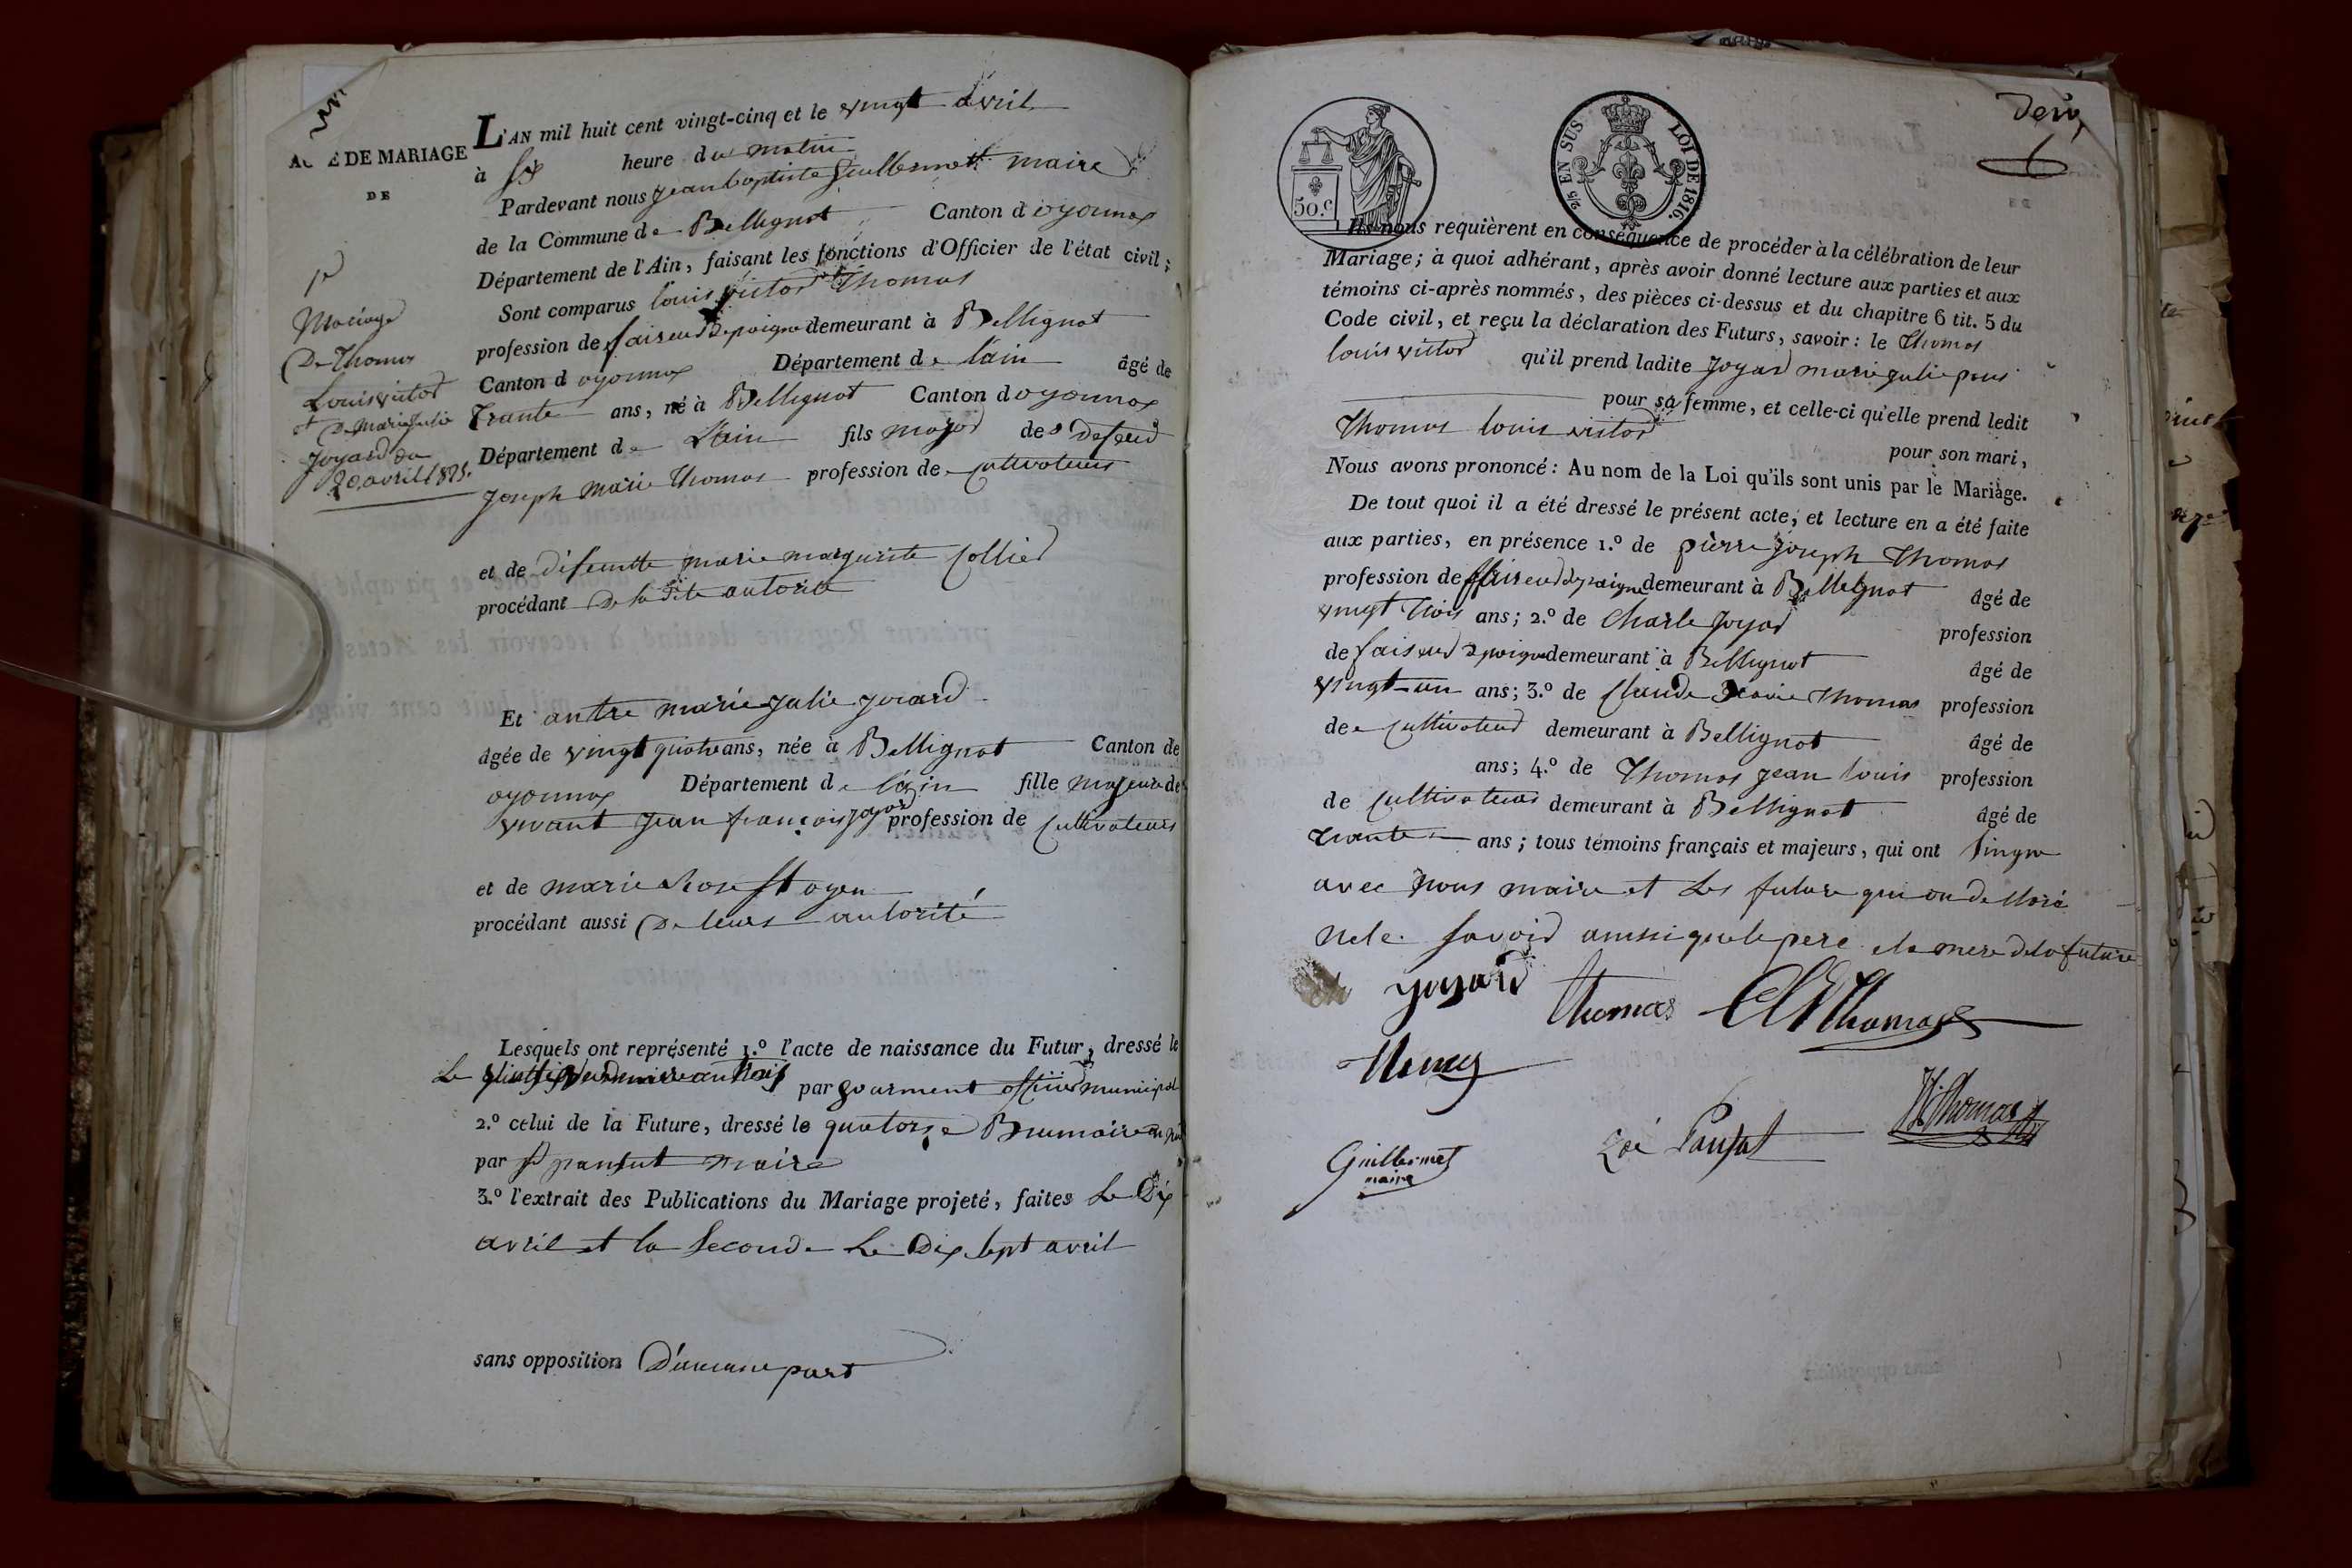 ACTE DE MARIAGE
DE
1er
Mariage
De Thomas
Louis victor
& De Marie Julie
Joyard du
20 avril 1825.
L'AN mil huit cent vingt-cinq et le vingt avril
à six heure du matin
Pardevant nous jean baptiste Guillermet maire
de la Commune de Bellignat Canton d oyonnax
Département de l'Ain, faisant les fonctions d'Officier de l'état civil;
Sont comparus louis victor Thomas
profession de faiseur Depeigne demeurant à Bellignat
Canton d oyonnax Département de l'ain âgé de
Trante ans, né à Bellignat Canton d oyonnax
Département de L'ain fils majeur de
joseph marie Thomas profession de cultivateur
et de défeunte marie marguerite Collier
procédant De sa dite autorité
Et autre marie julie joiard
âgée de vingt quatre ans, née à Bellignat Canton de
oyonnax Département de l'ain fille majeure de
vivant jean françois joyard profession de cultivateur
et de marie Rose St oyen
procédant aussi De leurs autorité
Lesquels ont représenté 1.º l'acte de naissance du Futur, dressé le
Le par officier municipal
2.º celui de la Future, dressé le quatorze Brumaire an
par maire
3.º l'extrait des Publications du Mariage projeté, faites Le Dix
avril et la Seconde Le Dix sept avril
sans opposition D'aucune part
50.c
2/5 EN SUS LOI DE 1816.
Deux
Ils nous requièrent en conséquence de procéder à la célébration de leur
Mariage; à quoi adhérant, après avoir donné lecture aux parties et aux
témoins ci-après nommés, des pièces ci-dessus et du chapitre 6 tit. 5 du
Code civil, et reçu la déclaration des Futurs, savoir: le Thomas
louis victor qu'il prend ladite Joyard marie julie pour
pour sa femme, et celle-ci qu'elle prend ledit
Thomas louis victor pour son mari,
Nous avons prononcé: Au nom de la Loi qu'ils sont unis par le Mariage.
De tout quoi il a été dressé le présent acte, et lecture en a été faite
aux parties, en présence 1.º de pierre joseph Thomas
profession de faiseur depeigne demeurant à Bellignat âgé de
vingt trois ans; 2.º de Charle Joyard profession
de faiseur Depeigne demeurant à Bellignat âgé de
vingt-un ans; 3.º de Claude Marie Thomas profession
de cultivateur demeurant à Bellignat âgé de
ans; 4.º de Thomas jean louis profession
de cultivateur demeurant à Bellignat âgé de
trante ans; tous témoins français et majeurs, qui ont singne
avec Nous maire et Les future qui on declaré
nele savoir aussi que le pere ela mere dela future
joyard Thomas Thomas
Guillermet
maire
Thomas